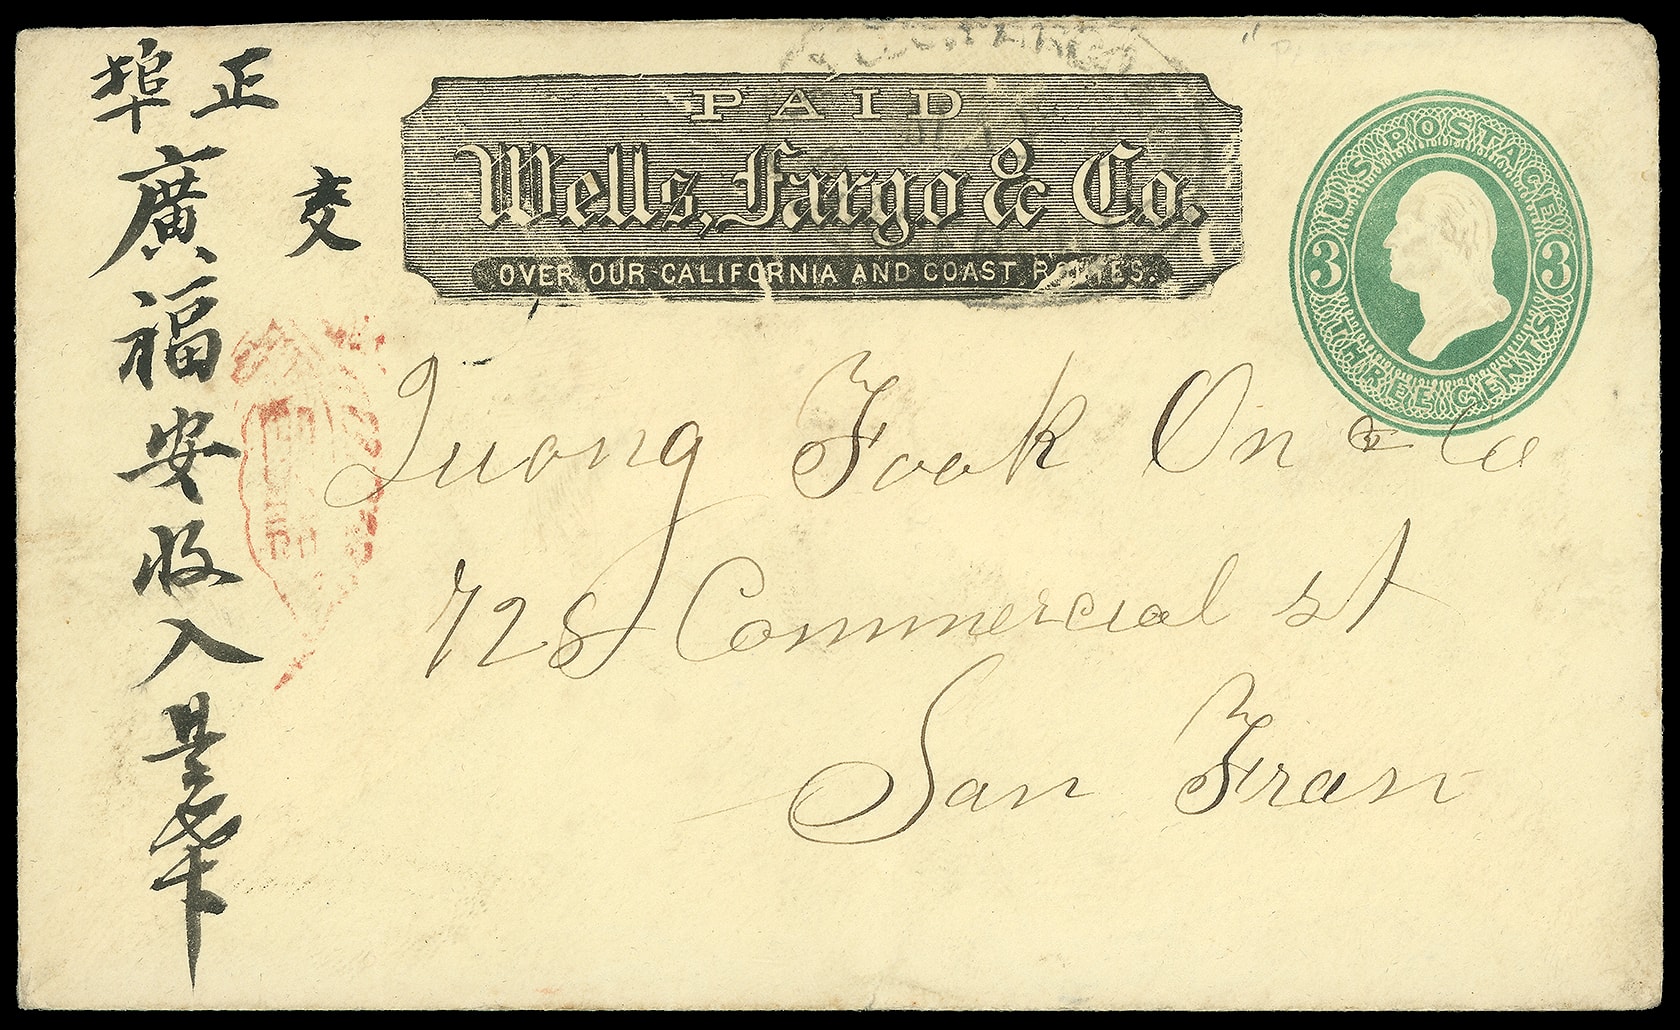 正埠
交
廣福安收入
PAID
Wells, Fargo & Co.
OVER OUR CALIFORNIA AND COAST ROUTES.
U.S. POSTAGE
3 3
THREE CENTS
Quong Fook On & Co
728 Commercial st
San Fran